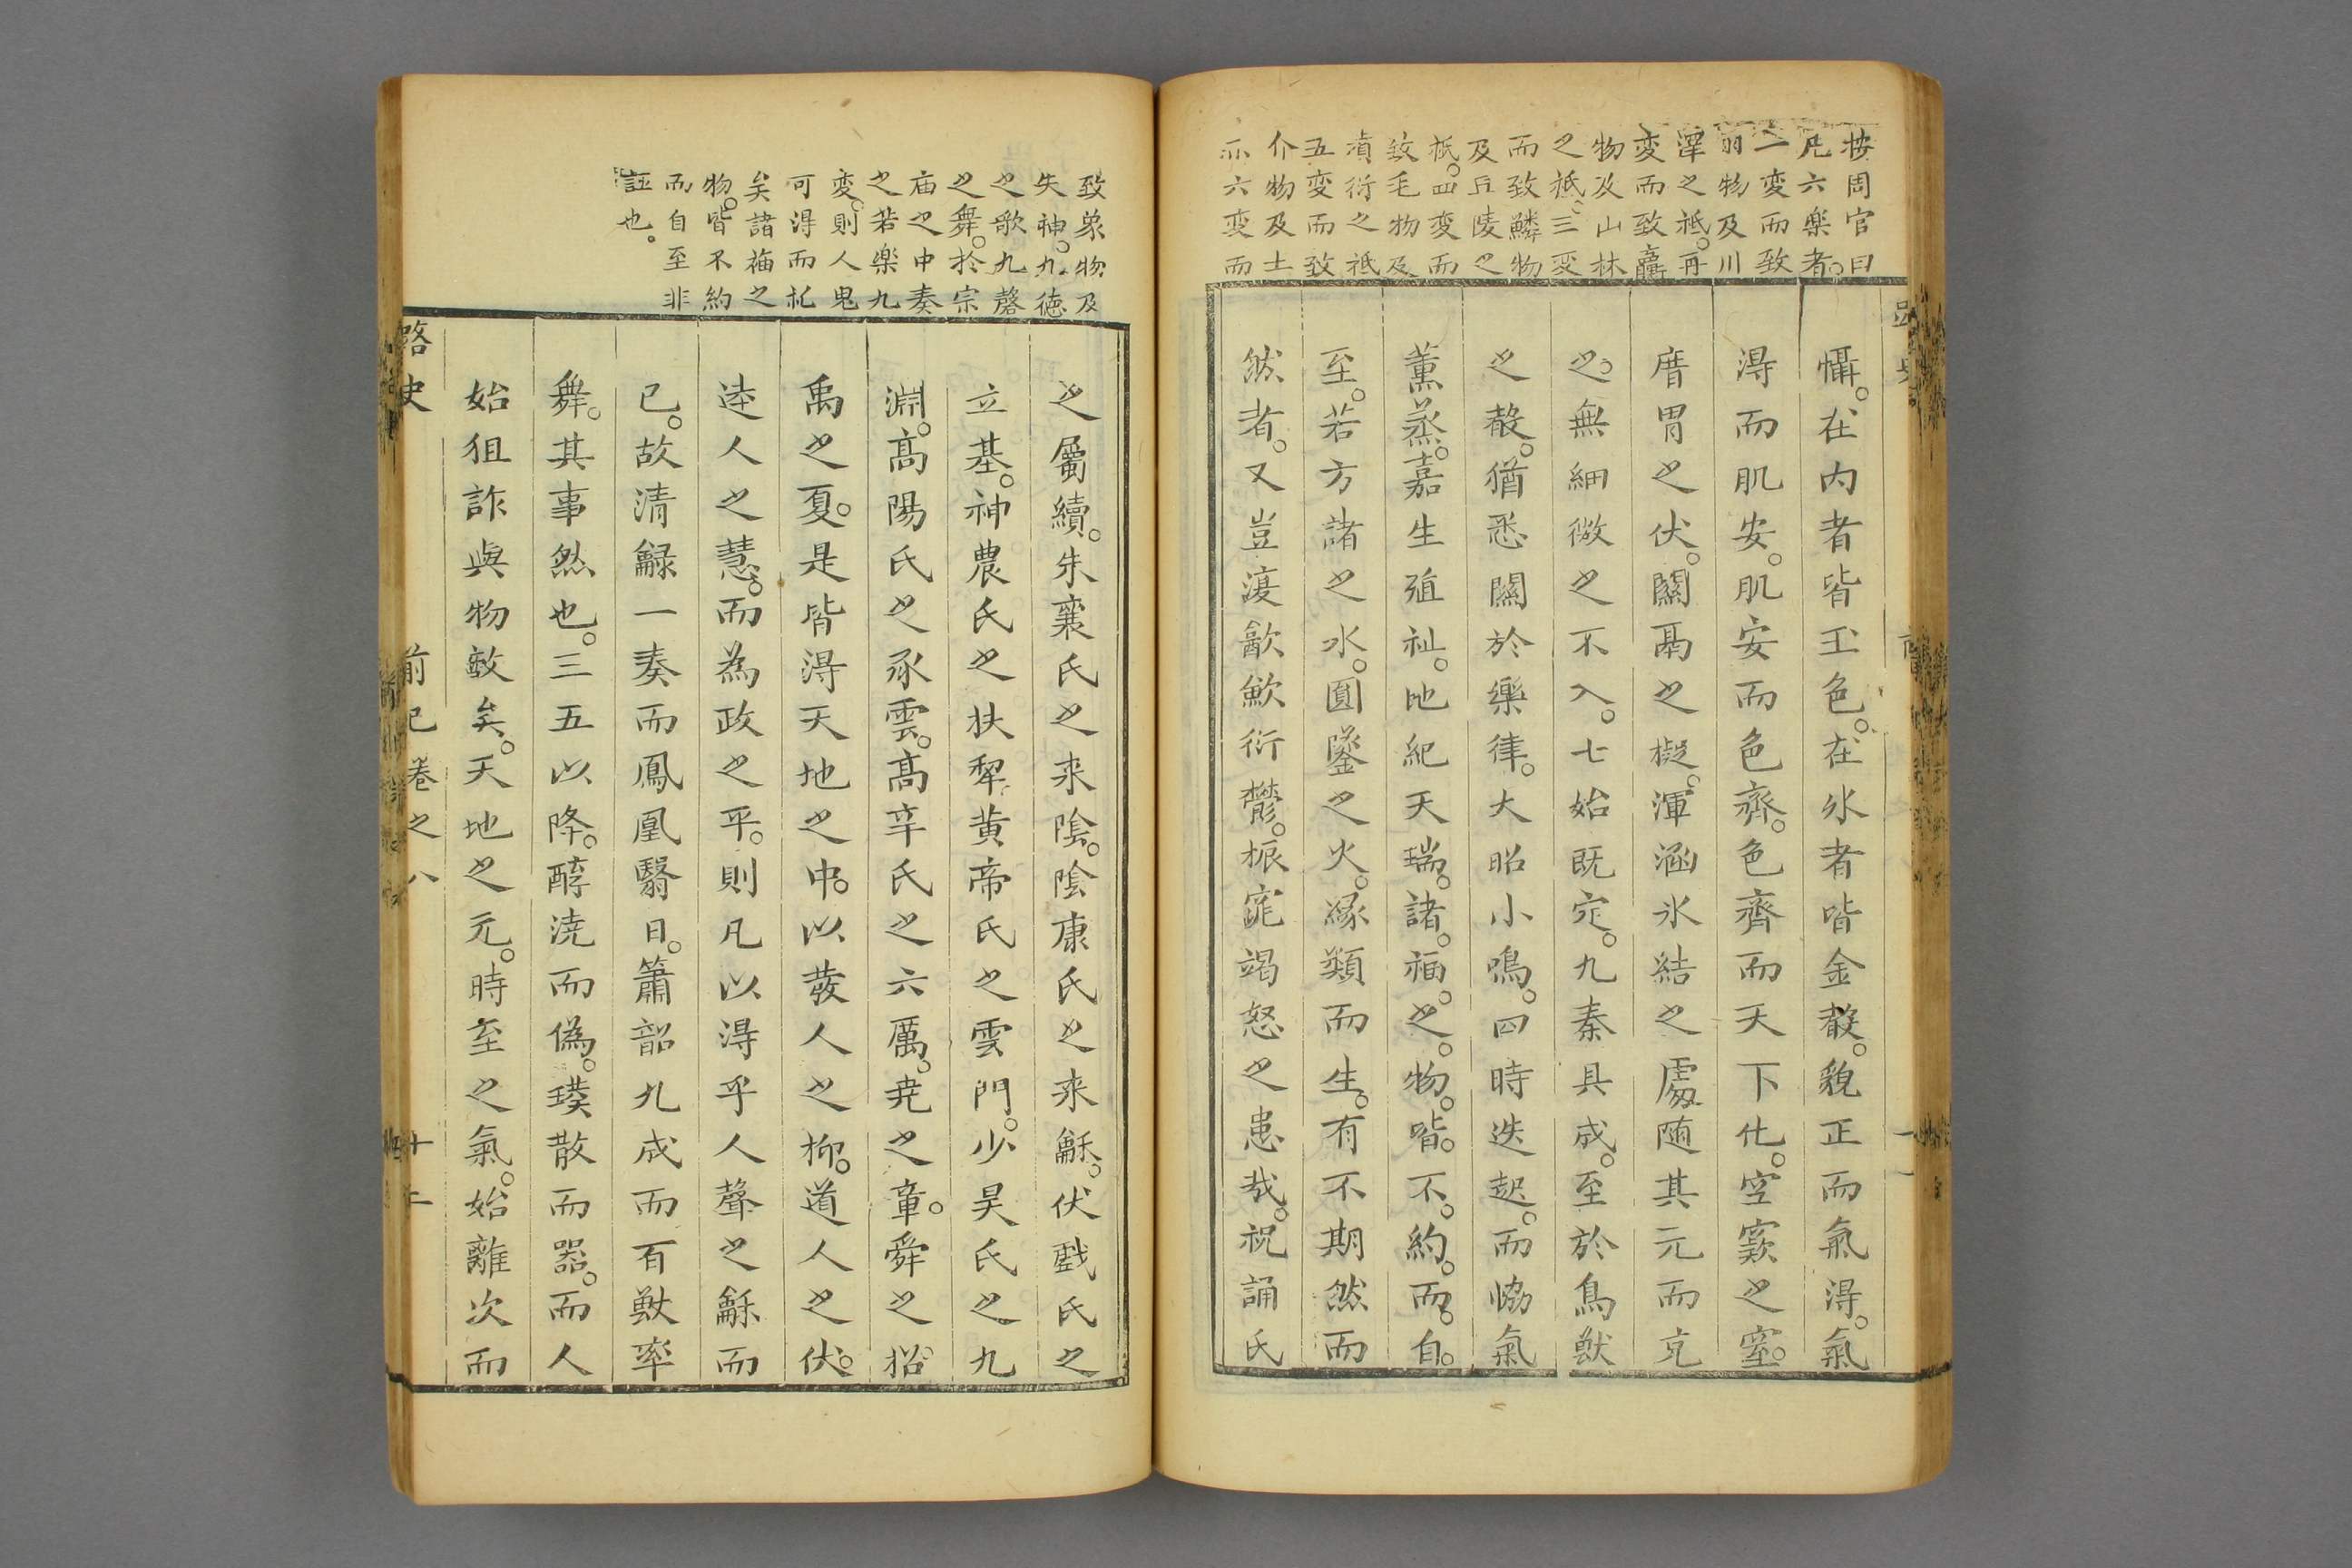 按周官曰
凡六樂者
一変而致
羽物及川
澤之祗再
変而致臝
物及山林
之祗三変
而致鱗物
及丘陵之
祗四変而
致毛物及
墳衍之祗
五変而致
介物及土
示六変而
慴在内者皆玉色在外者皆金聲貌正而氣得氣
得而肌安肌安而色齊色齊而天下化空窾之窒
厝胃之伏關鬲之礙渾涵氷結之處随其元而克
之無細微之不入七始既定九奏具成至於鳥獸
之聲猶悉關於樂律大昭小鳴四時迭起而恊氣
薫蒸嘉生殖祉地紀天瑞諸福之物皆不約而自
至若方諸之水圓鑒之火縁類而生有不期然而
然者又豈湲歊歔衍鬱振窕竭怒之患哉祝誦氏
致象物及
失神九徳
之歌九磬
之舞於宗
庙之中奏
之若樂九
変則人鬼
可得而礼
矣諸福之
物皆不約
而自至非
誣也
之屬續朱襄氏之来陰陰康氏之来龢伏戲氏之
立基神農氏之扶犂黄帝氏之雲門少昊氏之九
淵高陽氏之承雲高辛氏之六厲尭之章舜之招
禹之夏是皆得天地之中以發人之抑道人之伏
逹人之慧而為政之平則凡以得乎人聲之龢而
已故清籙一奏而鳳凰翳日簫韶九成而百獸率
舞其事然也三五以降醇澆而偽璞散而器而人
始狙詐與物敵矣天地之元時至之氣始離次而
路史
前紀卷之八
十二